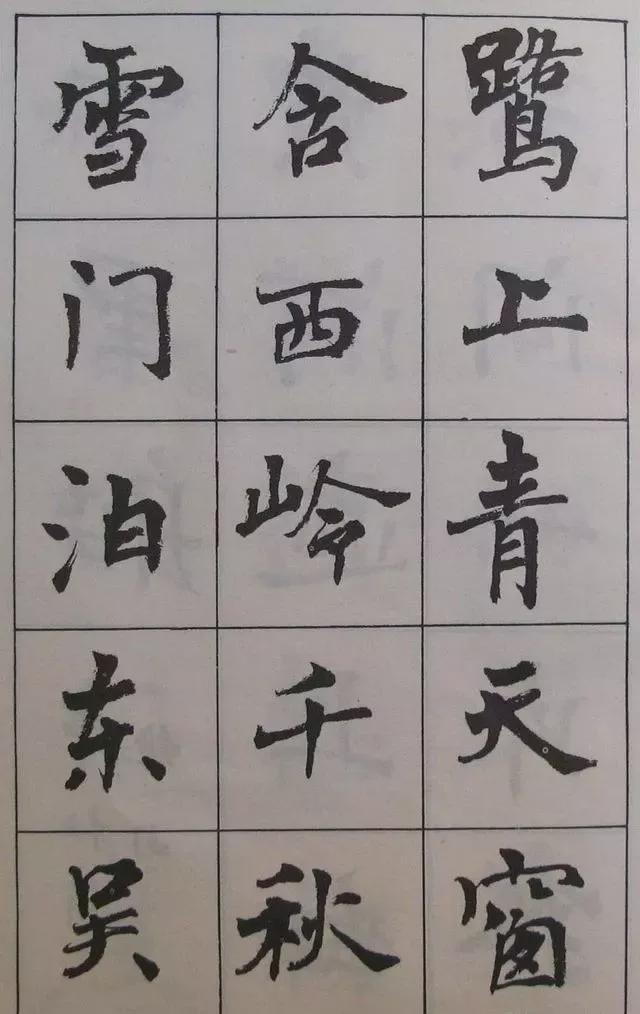 鹭上青天窗
含西岭千秋
雪门泊东吴